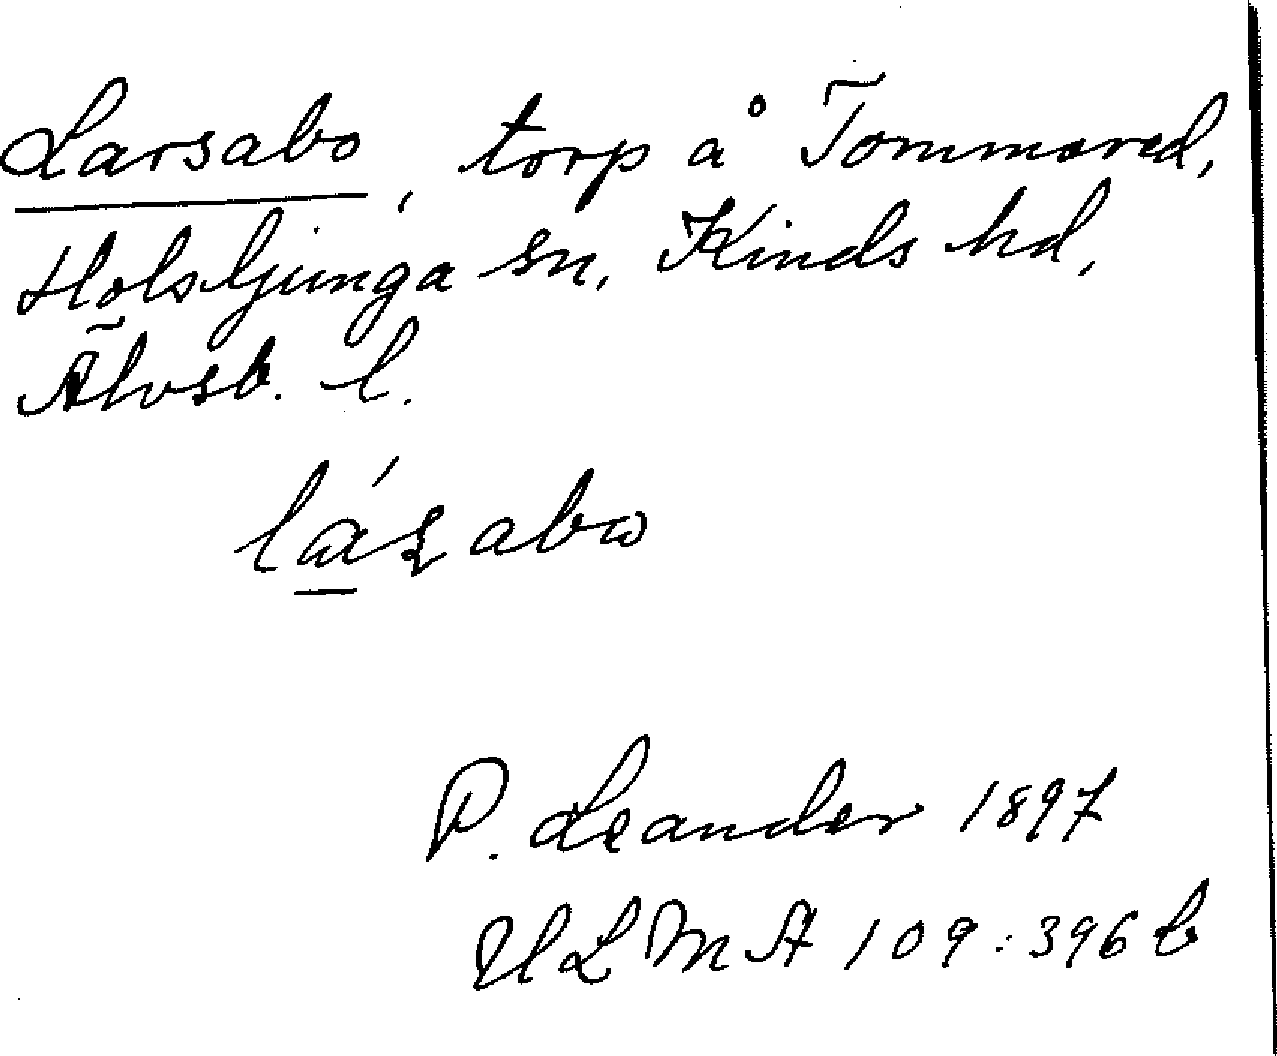 Larsabo, torp å Tommared,
Holsljunga sn, Kinds hd,
Älvsb. l.
lásabω
P. Leander 1897
ULMA 109:396 b